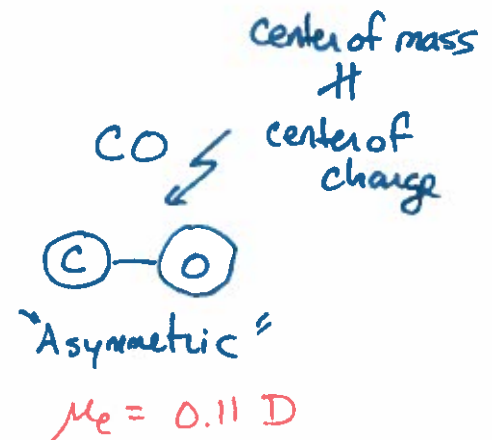 center of mass
≠
center of
charge
CO
C — O
"Asymmetric"
μe = 0.11 D